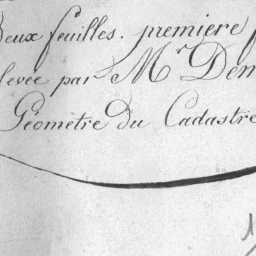 Deux feuilles. première
levée par Mr Dem
Géomètre du Cadastre